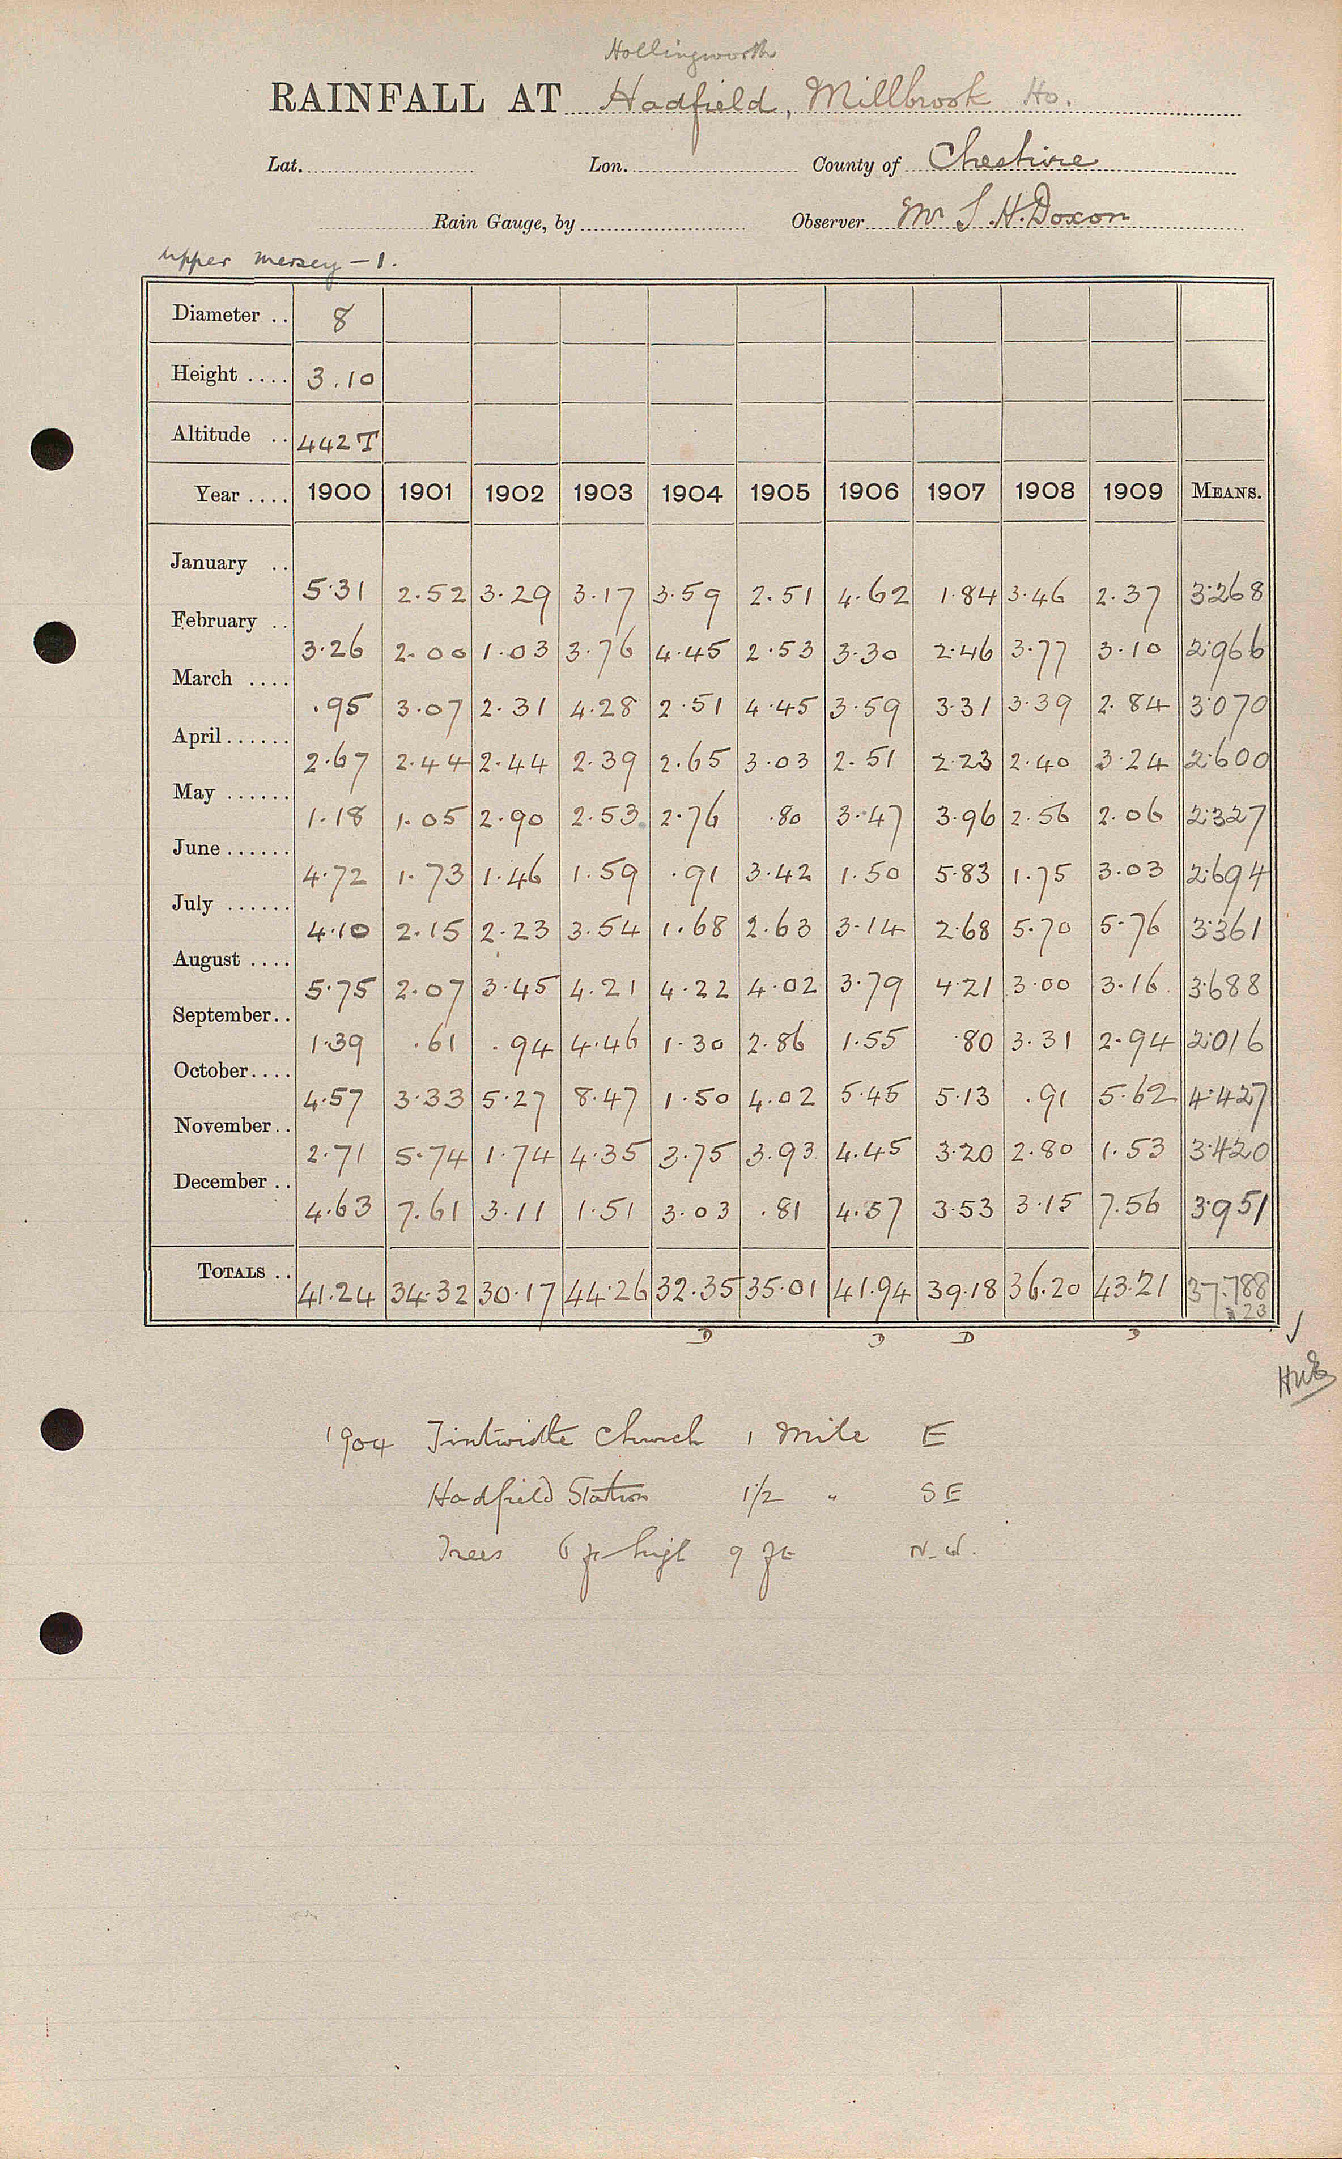 Hollingworth
RAINFALL AT Hadfield, Millbrook Ho.
Lat. Lon. County of Cheshire
Rain Gauge, by Observer Mr S. H. Doxon
Upper Mersey - 1.
Diameter .. 8
Height .... 3.10
Altitude .. 442 T
Year .... 1900 1901 1902 1903 1904 1905 1906 1907 1908 1909 MEANS.
January .. 5.31 2.52 3.29 3.17 3.59 2.51 4.62 1.84 3.46 2.37 3.268
February .. 3.26 2.00 1.03 3.76 4.45 2.53 3.30 2.46 3.77 3.10 2.966
March .... .95 3.07 2.31 4.28 2.51 4.45 3.59 3.31 3.39 2.84 3.070
April...... 2.67 2.44 2.44 2.39 2.65 3.03 2.51 2.23 2.40 3.24 2.600
May ...... 1.18 1.05 2.90 2.53 2.76 .80 3.47 3.96 2.56 2.06 2.327
June ...... 4.72 1.73 1.46 1.59 .91 3.42 1.50 5.83 1.75 3.03 2.694
July ...... 4.10 2.15 2.23 3.54 1.68 2.63 3.14 2.68 5.70 5.76 3.361
August .... 5.75 2.07 3.45 4.21 4.22 4.02 3.79 4.21 3.00 3.16 3.688
September.. 1.39 .61 .94 4.46 1.30 2.86 1.55 .80 3.31 2.94 2.016
October.... 4.57 3.33 5.27 8.47 1.50 4.02 5.45 5.13 .91 5.62 4.427
November.. 2.71 5.74 1.74 4.35 3.75 3.93 4.45 3.20 2.80 1.53 3.420
December .. 4.63 7.61 3.11 1.51 3.03 .81 4.57 3.53 3.15 7.56 3.951
TOTALS .. 41.24 34.32 30.17 44.26 32.35 35.01 41.94 39.18 36.20 43.21 37.788
23
D D D D
1904 Tintwistle Church 1 Mile E
Hadfield Station 1/2 " SE
Trees 6 ft high 9 ft N.W.